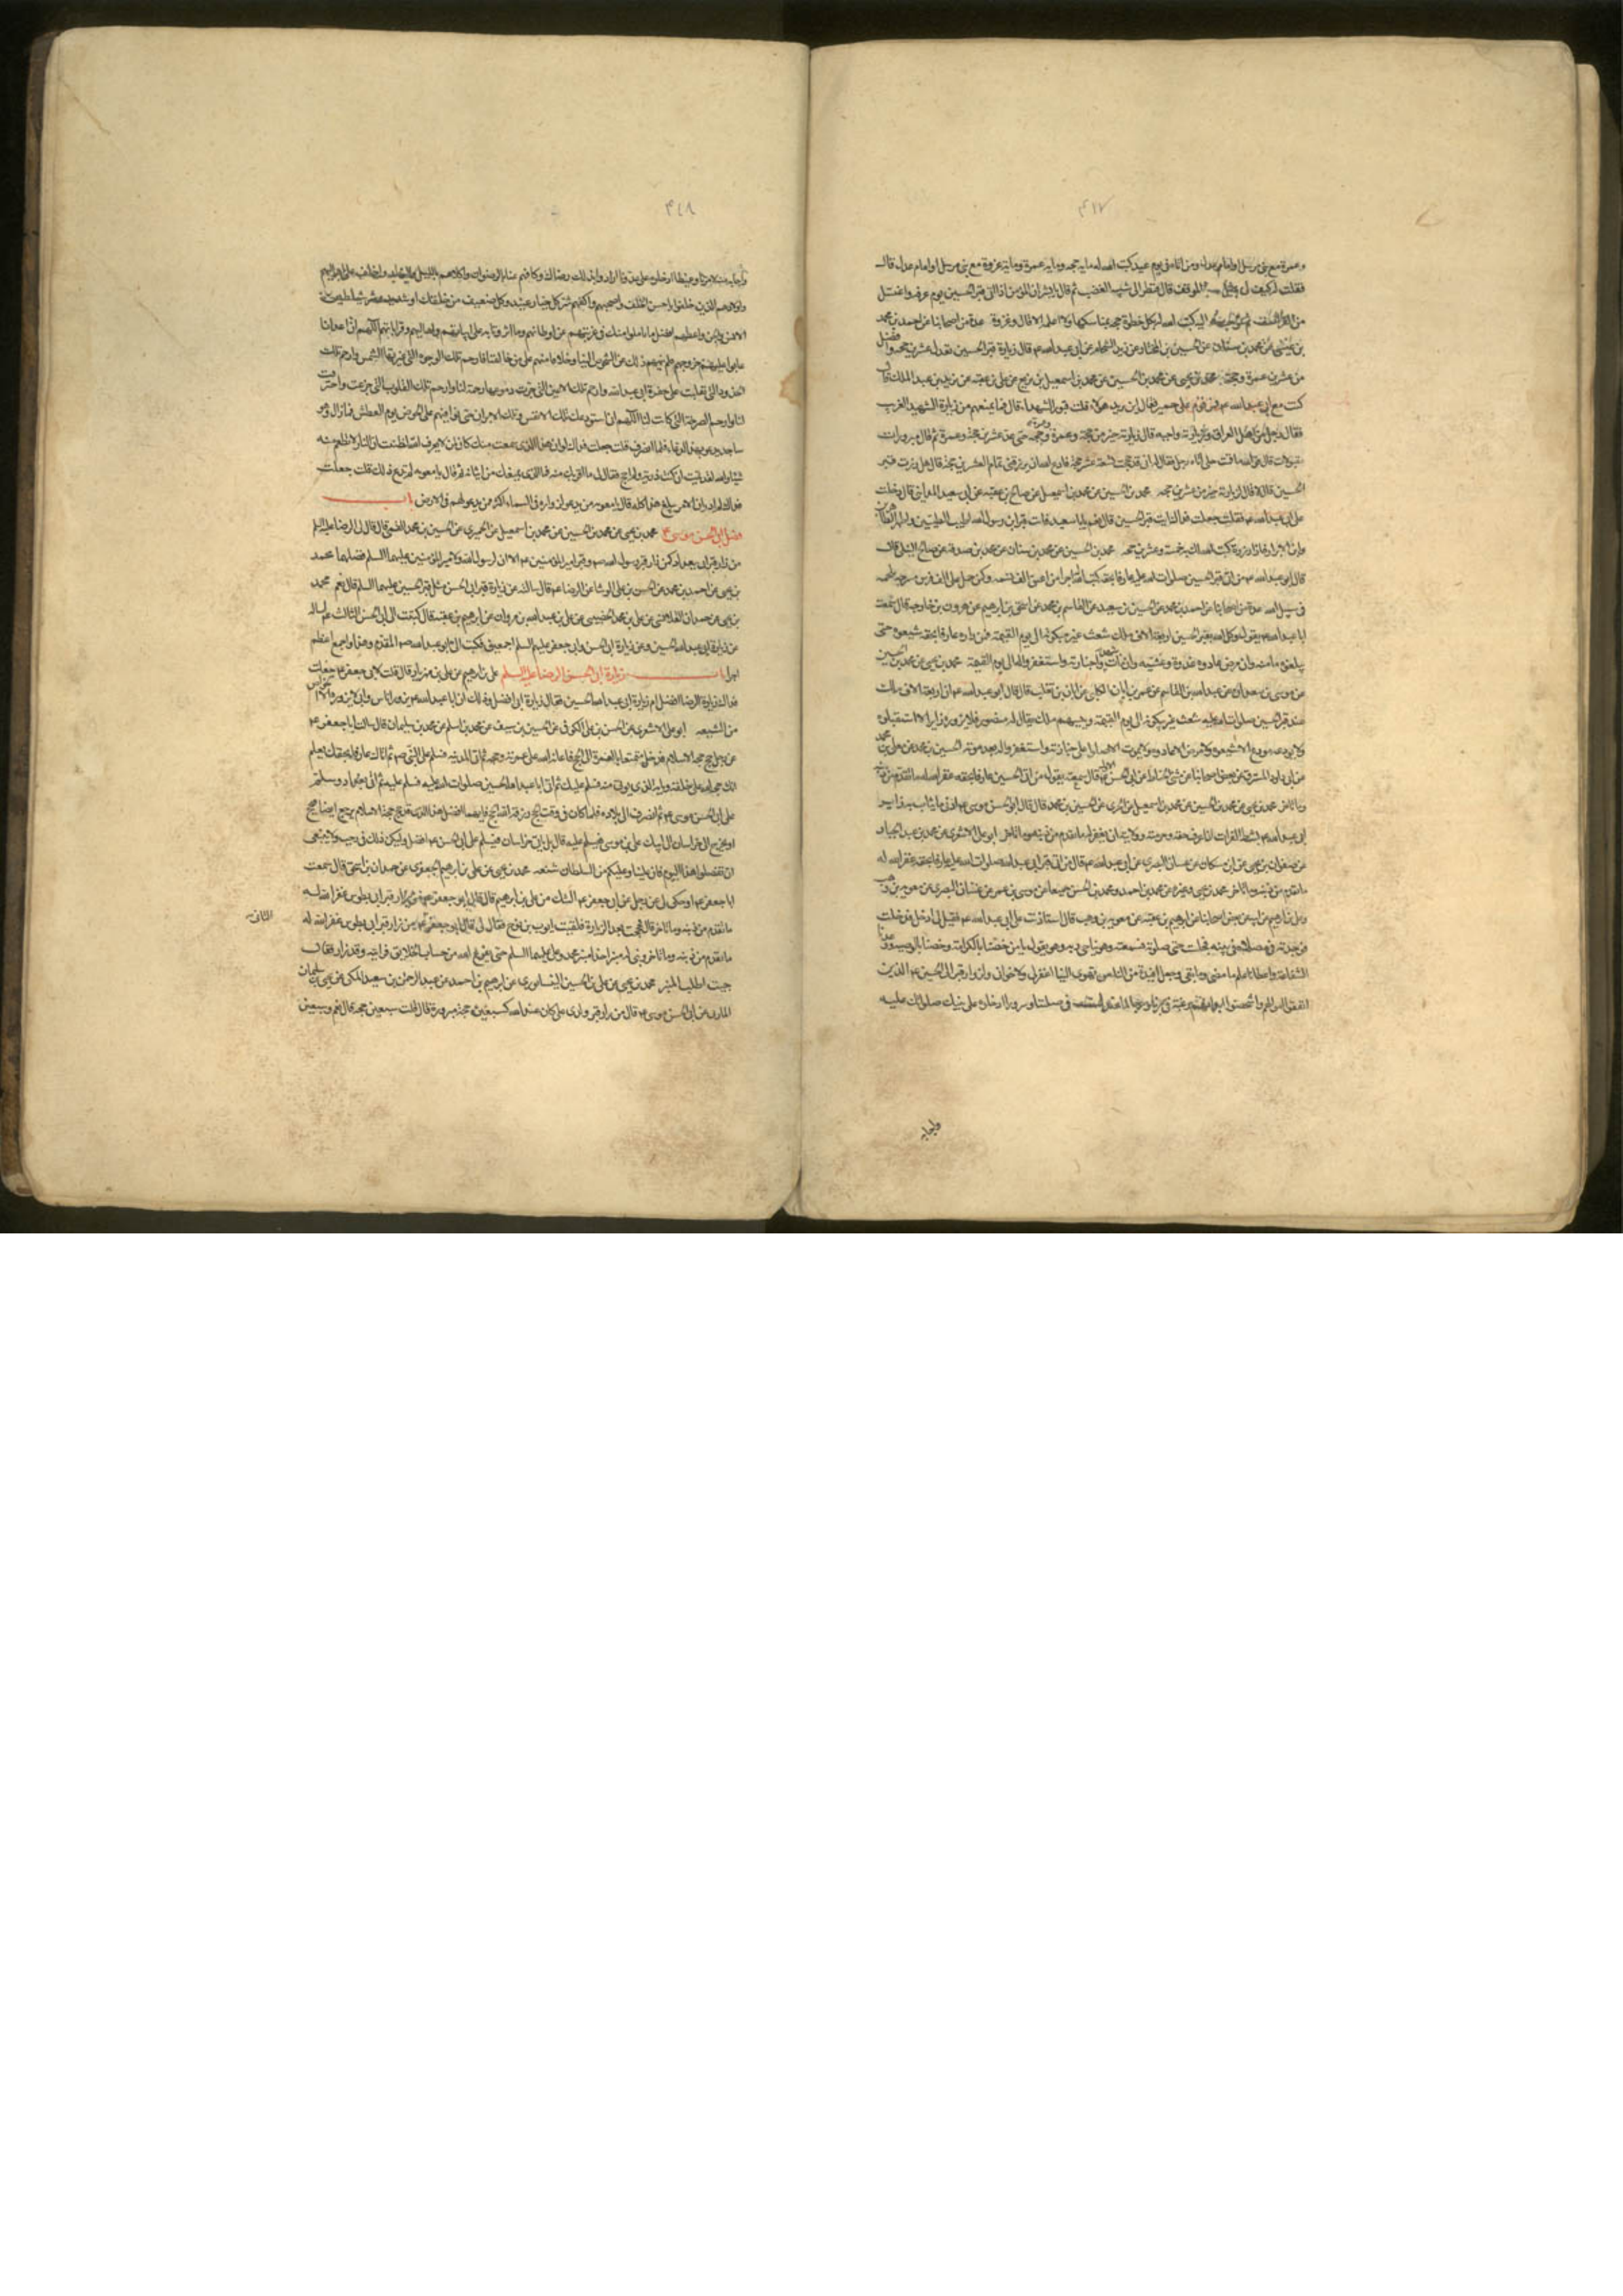 ٤١٧
وعمرة مع نبي مرسل او امام عدل ومن اتاه في يوم عيد كتب الله له مايه حجه ومايه عمرة ومايه غزوة مع نبي مرسل او امام عدل قال
فقلت له كيف لي بمثل الموقف قال فنظر الى شبه المغضب ثم قال يا بشير ان المؤمن اذا اتى قبر الحسين يوم عرفه واغتسل
من الفرات ثم توجه اليه كتب الله له بكل خطوة حجه بمناسكها ولا اعلمه الا قال وغزوة عدة من اصحابنا عن احمد بن محمد
بن عيسى عن محمد بن سنان عن الحسين بن المختار عن زيد الشحام عن ابي عبد الله ع قال زيارة قبر الحسين تعدل عشرين حجه وافضل
من عشرين عمرة وحجة محمد بن يحيى عن محمد بن الحسين عن محمد بن اسمعيل بن بزيع عن علي بن عقبه عن يزيد بن عبد الملك قال
كنت مع ابي عبد الله ع فمر قوم على حمير فقال اين يريد هؤلاء قلت قبور الشهداء قال فما يمنعهم من زيارة الشهيد الغريب
فقال رجل من اهل العراق وزيارته واجبه قال زيارته خير من حجة وعمرة وعمرة وحجة حتى عد عشرين حجة وعمرة ثم قال مبرورات
متقبلات قال فوالله ما قمت حتى اتاه رجل فقال له اني قد حججت تسعة عشر حجة فادع الله ان يرزقني تمام العشرين حجة قال هل زرت قبر
الحسين قال لا قال لزيارته خير من عشرين حجه محمد بن الحسين عن محمد بن اسمعيل عن صالح بن عقبه عن ابي سعيد المدايني قال دخلت
على ابي عبد الله ع فقلت جعلت فداك ايت قبر الحسين قال نعم يا با سعيد فات قبر ابن رسول الله اطيب الطيبين واطهر الطاهرين
وابر الابرار فاذا زرته كتب الله لك به خمسة وعشرين حجه محمد بن الحسين عن محمد بن سنان عن محمد بن صدقه عن صالح النيلي قال
قال ابو عبد الله ع من اتى قبر الحسين صلوات الله عليه عارفا بحقه كتب الله له اجر من اعتق الف نسمه وكمن حمل على الف فرس مسرجه ملجمه
في سبيل الله عدة من اصحابنا عن احمد بن محمد عن الحسين بن سعيد عن القاسم بن محمد عن اسحق بن ابرهيم عن هرون بن خارجه قال سمعت
ابا عبد الله ع يقول وكل الله بقبر الحسين اربعة الاف ملك شعث غبر يبكونه الى يوم القيمة فمن زاره عارفا بحقه شيعوه حتى
يبلغوه مامنه وان مرض عادوه غدوة وعشية وان مات شهدوا جنازته واستغفروا له الى يوم القيمة محمد بن يحيى عن محمد بن الحسين
عن موسى بن سعدان عن عبد الله بن القاسم عن عمر بن ابان الكلبي عن ابان بن تغلب قال قال ابو عبد الله ع ان اربعة الاف ملك
عند قبر الحسين صلوات الله عليه شعث غبر يبكونه الى يوم القيمة رئيسهم ملك يقال له منصور فلا يزوره زاير الا استقبلوه
ولا يودعه مودع الا شيعوه ولا مرض الا عادوه ولا يموت الا صلوا على جنازته واستغفروا له بعد موته الحسين بن محمد عن علي بن محمد
ابي عبد الله ع بشط الفرات اذا عرف حقه وحرمته وولايته ان يغفر له ما تقدم من ذنبه وما تاخر ابو علي الاشعري عن محمد بن عبد الجبار
عن صفوان بن يحيى عن ابن مسكان عن غسان البصري عن ابي عبد الله ع قال من اتى قبر ابي عبد الله صلوات الله عليه عارفا بحقه غفر الله له
ما تقدم من ذنبه وما تاخر محمد بن يحيى وغيره عن محمد بن احمد ومحمد بن الحسين جميعا عن موسى بن عمر عن غسان البصري عن معويه بن وهب
وعلي بن ابرهيم عن ابيه عن بعض اصحابنا عن ابرهيم بن عقبه عن معويه بن وهب قال استاذنت على ابي عبد الله ع فقيل لي ادخل فدخلت
فوجدته في مصلاه في بيته فجلست حتى قضى صلوته فسمعته وهو يناجي ربه وهو يقول يا من خصنا بالكرامة وخصنا بالوصية ووعدنا
الشفاعة واعطانا علم ما مضى وما بقي وجعل افئدة من الناس تهوى الينا اغفر لي ولاخواني ولزوار قبر ابي الحسين ع الذين
انفقوا اموالهم واشخصوا ابدانهم رغبة في برنا ورجاء لما عندك في صلتنا وسرورا ادخلوه على نبيك صلواتك عليه
واجابه
٤١٨
واجابة منهم لامرنا وغيظا ادخلوه على عدونا ارادوا بذلك رضاك فكافهم عنا بالرضوان واكلاهم بالليل والنهار واخلف على اهاليهم
واولادهم الذين خلفوا باحسن الخلف واصحبهم واكفهم شر كل جبار عنيد وكل ضعيف من خلقك او شديد وشر شياطين
الانس والجن واعطهم افضل ما املوا منك في غربتهم عن اوطانهم وما اثرونا به على ابنائهم واهاليهم وقراباتهم اللهم ان اعداءنا
عابوا عليهم خروجهم فلم ينههم ذلك عن الشخوص الينا وخلافا منهم على من خالفنا فارحم تلك الوجوه التي غيرتها الشمس وارحم تلك
الخدود التي تقلبت على حفرة ابي عبد الله وارحم تلك الاعين التي جرت دموعها رحمة لنا وارحم تلك القلوب التي جزعت واحترقت
لنا وارحم الصرخة التي كانت لنا اللهم اني استودعك تلك الانفس وتلك الابدان حتى نوافيهم على الحوض يوم العطش فما زال وهو
ساجد يدعو بهذا الدعاء فلما انصرف قلت جعلت فداك لو ان هذا الذي سمعت منك كان لمن لا يعرف الله لظننت ان النار لا تطعم منه
شيئا والله لقد تمنيت ان كنت زرته ولم احج فقال لي ما اقربك منه فما الذي يمنعك من اتيانه ثم قال يا معويه لم تدع ذلك قلت جعلت
فداك لم ادر ان الامر يبلغ هذا كله قال يا معويه من يدعو لزواره في السماء اكثر ممن يدعو لهم في الارض باب
فضل ابي الحسن موسى ع محمد بن يحيى عن محمد بن الحسين عن محمد بن اسمعيل عن الخيبري عن الحسين بن محمد القمي قال قال لي الرضا عليه السلم
من زار قبر ابي ببغداد كمن زار قبر رسول الله ص وقبر امير المؤمنين ع الا ان لرسول الله ولامير المؤمنين عليهما السلم فضلهما محمد
بن يحيى عن احمد بن محمد عن الحسن بن علي الوشا عن الرضا ع قال سالته عن زيارة قبر ابي الحسن مثل قبر الحسين عليهما السلم قال نعم محمد
بن يحيى عن حمدان القلانسي عن علي بن محمد الحضيني عن علي بن عبد الله بن مروان عن ابرهيم بن عقبه قال كتبت الى ابي الحسن الثالث عليه السلم
عن زيارة ابي عبد الله الحسين وعن زيارة ابي الحسن وابي جعفر عليهم السلم اجمعين فكتب الي ابو عبد الله ص المقدم وهذا اجمع اعظم
اجرا باب زيارة ابي الحسن الرضا عليه السلم علي بن ابرهيم عن علي بن مهزيار قال قلت لابي جعفر ع جعلت
فداك زيارة الرضا افضل ام زيارة ابي عبد الله الحسين فقال زيارة ابي افضل وذلك ان ابا عبد الله ع يزوره كل الناس وابي لا يزوره الا الخواص
من الشيعه ابو علي الاشعري عن الحسن بن علي الكوفي عن الحسين بن سيف عن محمد بن اسلم عن محمد بن سليمان قال سالت ابا جعفر ع
عن رجل حج حجة الاسلام فدخل متمتعا بالعمرة الى الحج فاعانه الله على عمرته وحجه ثم اتى المدينه فسلم على النبي ص ثم اتاك عارفا بحقك يعلم
انك حجه الله على خلقه وبابه الذي يؤتى منه فسلم عليك ثم اتى ابا عبد الله الحسين صلوات الله عليه فسلم عليه ثم اتى بغداد وسلم
على ابي الحسن موسى ع ثم انصرف الى بلاده فلما كان في وقت الحج رزقه الله الحج فايهما افضل هذا الذي قد حج حجة الاسلام يرجع ايضا فيحج
او يخرج الى خراسان الى ابيك علي بن موسى فيسلم عليه قال بل ياتي خراسان فيسلم على ابي الحسن ع افضل وليكن ذلك في رجب ولا ينبغي
ان تفعلوا هذا اليوم فان علينا وعليكم من السلطان شنعه محمد بن يحيى عن علي بن ابرهيم الجعفري عن حمدان بن اسحق قال سمعت
ابا جعفر ع او حكى لي عن رجل عن ابي جعفر ع الشك من علي بن ابرهيم قال قال ابو جعفر ع من زار قبر ابي بطوس غفر الله له
ما تقدم من ذنبه وما تاخر قال فحججت بعد الزيارة فلقيت ايوب بن نوح فقال لي قال ابو جعفر ع من زار قبر ابي بطوس غفر الله له
ما تقدم من ذنبه وما تاخر وبنى له منبرا حذاء منبر محمد وعلي عليهما السلم حتى يفرغ الله من حساب الخلايق فرايته وقد زار فقال
جيت اطلب المنبر محمد بن يحيى عن علي بن الحسين النيسابوري عن ابرهيم بن احمد عن عبد الرحمن بن سعيد المكي عن يحيى بن سليمان
المازني عن ابي الحسن موسى ع قال من زار قبر ولدي علي كان عند الله كسبعين حجة مبرورة قال قلت سبعين حجه قال نعم وسبعين